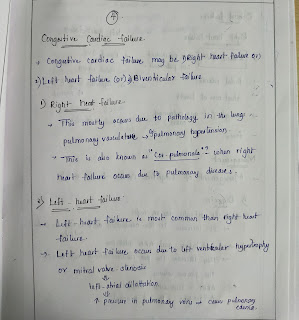 4
Congestive Cardiac failure
→ Congestive cardiac failure may be 1) Right heart failure (or)
2) Left heart failure (or) 3) Biventricular failure
1) Right heart failure
→ This mostly occurs due to pathology in the lungs
pulmonary vasculature → pulmonary hypertension.
→ This is also known as "Cor-pulmonale" when right
heart failure occurs due to pulmonary disease.
2) Left - heart failure
→ Left - heart failure is most common than right heart
failure.
→ Left heart failure occurs due to left ventricular hypertrophy
or mitral valve stenosis
left-atrial dilatation
↑ pressure in pulmonary veins → cause pulmonary